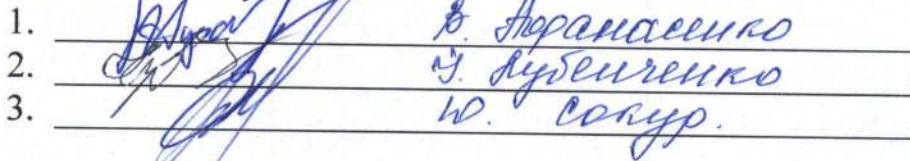 1. В. Афанасенко
2. І. Кубенченко
3. Ю. Сокур.